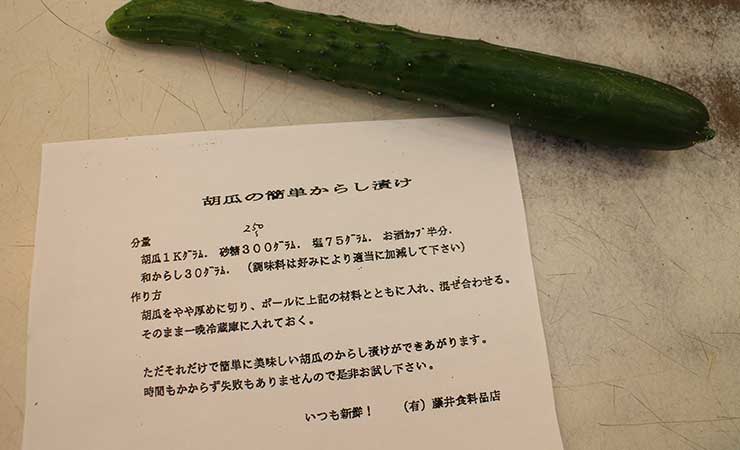 胡瓜の簡単からし漬け
分量
250
~
胡瓜1Kグラム. 砂糖300グラム. 塩75グラム. お酒カップ半分.
和からし30グラム. (調味料は好みにより適当に加減して下さい)
作り方
胡瓜をやや厚めに切り、ボールに上記の材料とともに入れ、混ぜ合わせる。
そのまま一晩冷蔵庫に入れておく。
ただそれだけで簡単に美味しい胡瓜のからし漬けができあがります。
時間もかからず失敗もありませんので是非お試し下さい。
いつも新鮮! (有)藤井食料品店